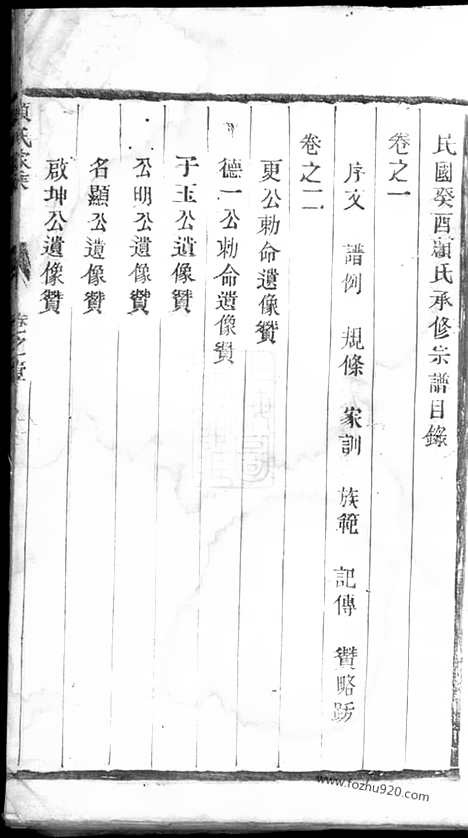 民國癸酉顧氏承修宗譜目錄
卷之一
序文 譜例 規條 家訓 族範 記傳 贊略跋
卷之二
更公勅命遺像贊
德一公勅命遺像贊
于玉公遺像贊
公明公遺像贊
名顯公遺像贊
啟坤公遺像贊
www.fozhu920.com